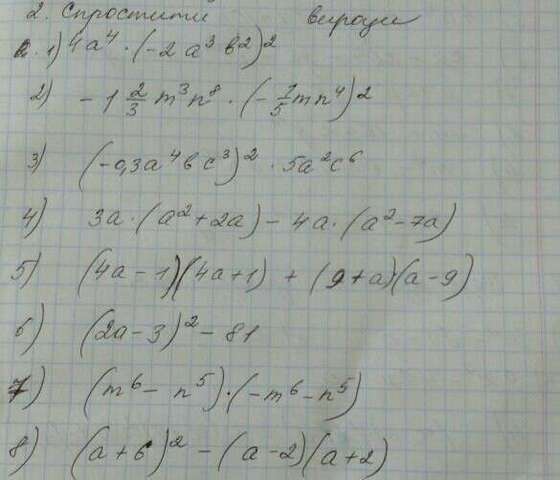 2. Спростити вирази
1) 4a⁴ · (-2a³b²)²
2) -1 2/3 m³n⁸ · (-1/5 mn⁴)²
3) (-0,3a⁴bc³)² · 5a²c⁶
4) 3a · (a² + 2a) - 4a · (a² - 7a)
5) (4a - 1)(4a + 1) + (9 + a)(a - 9)
6) (2a - 3)² - 81
7) (m⁶ - n⁵) · (-m⁶ - n⁵)
8) (a + 6)² - (a - 2)(a + 2)